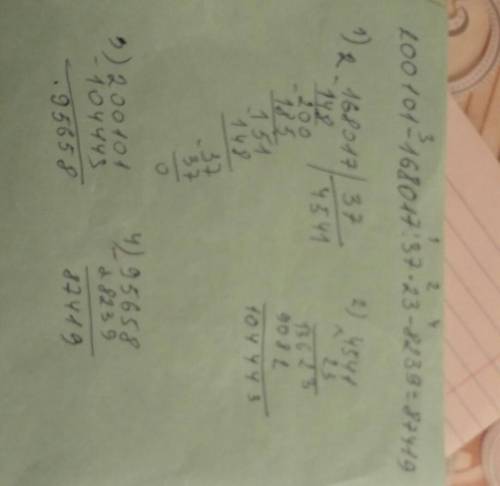 3 1 2 4
200101-168017:37·23-8239=87419
1) 168017 | 37
-148 4541
200
-185
151
-148
37
-37
0
2) 4541
× 23
13623
9082
104443
3) 200101
-104443
95658
4) 95658
-8239
87419